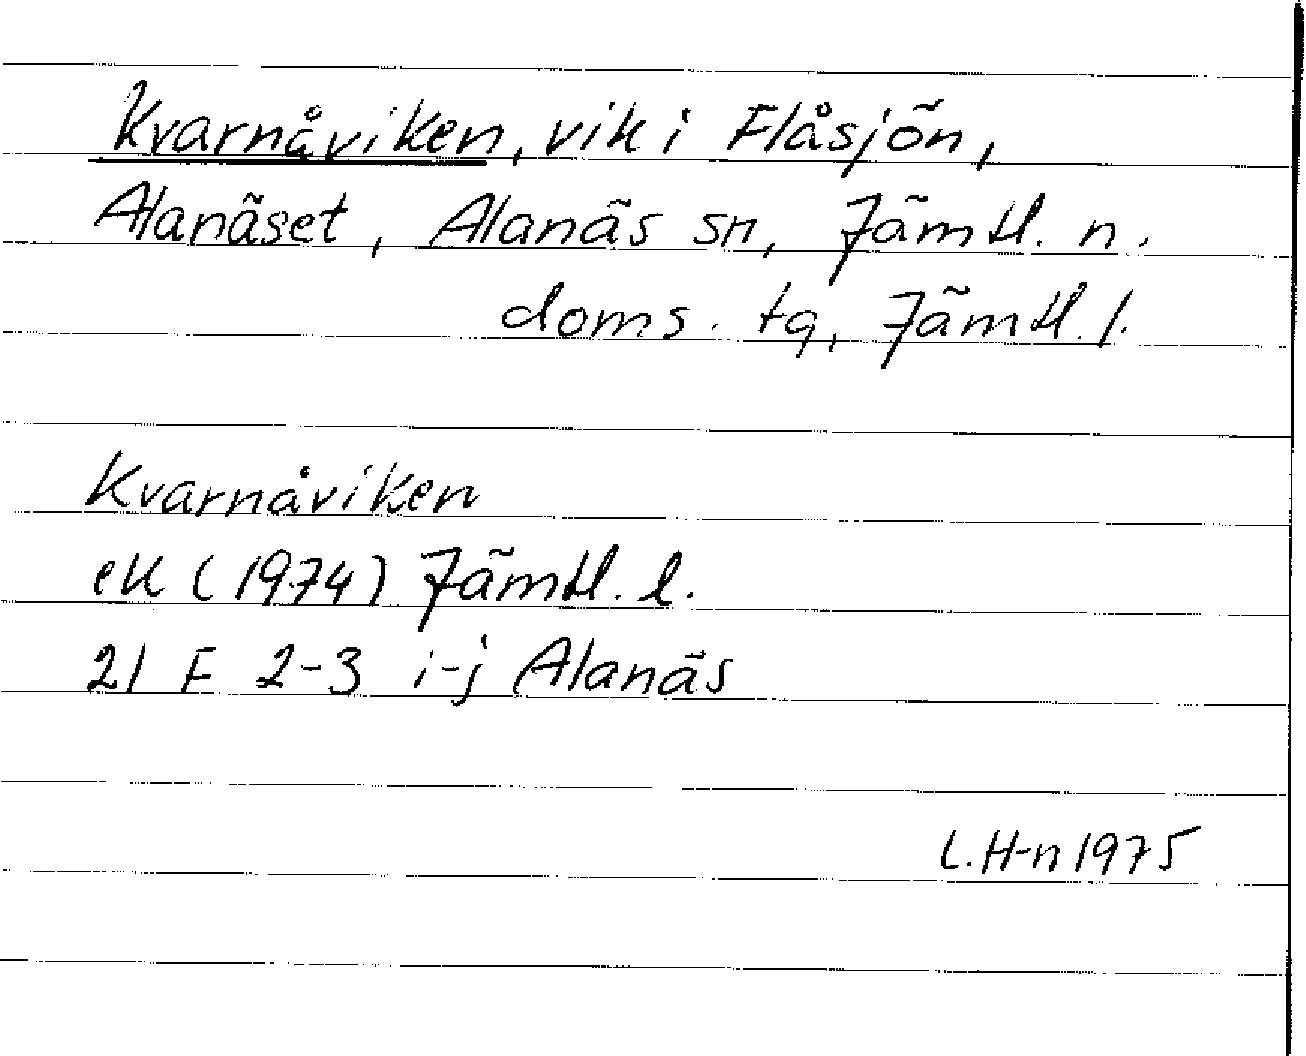 Kvarnåviken, vik i Flåsjön,
Alanäset, Alanäs sn, Jämtl. n.
doms. tg, Jämtl. l.
Kvarnåviken
eK (1974) Jämtl. l.
21 F 2-3 i-j Alanäs
L.H-n 1975